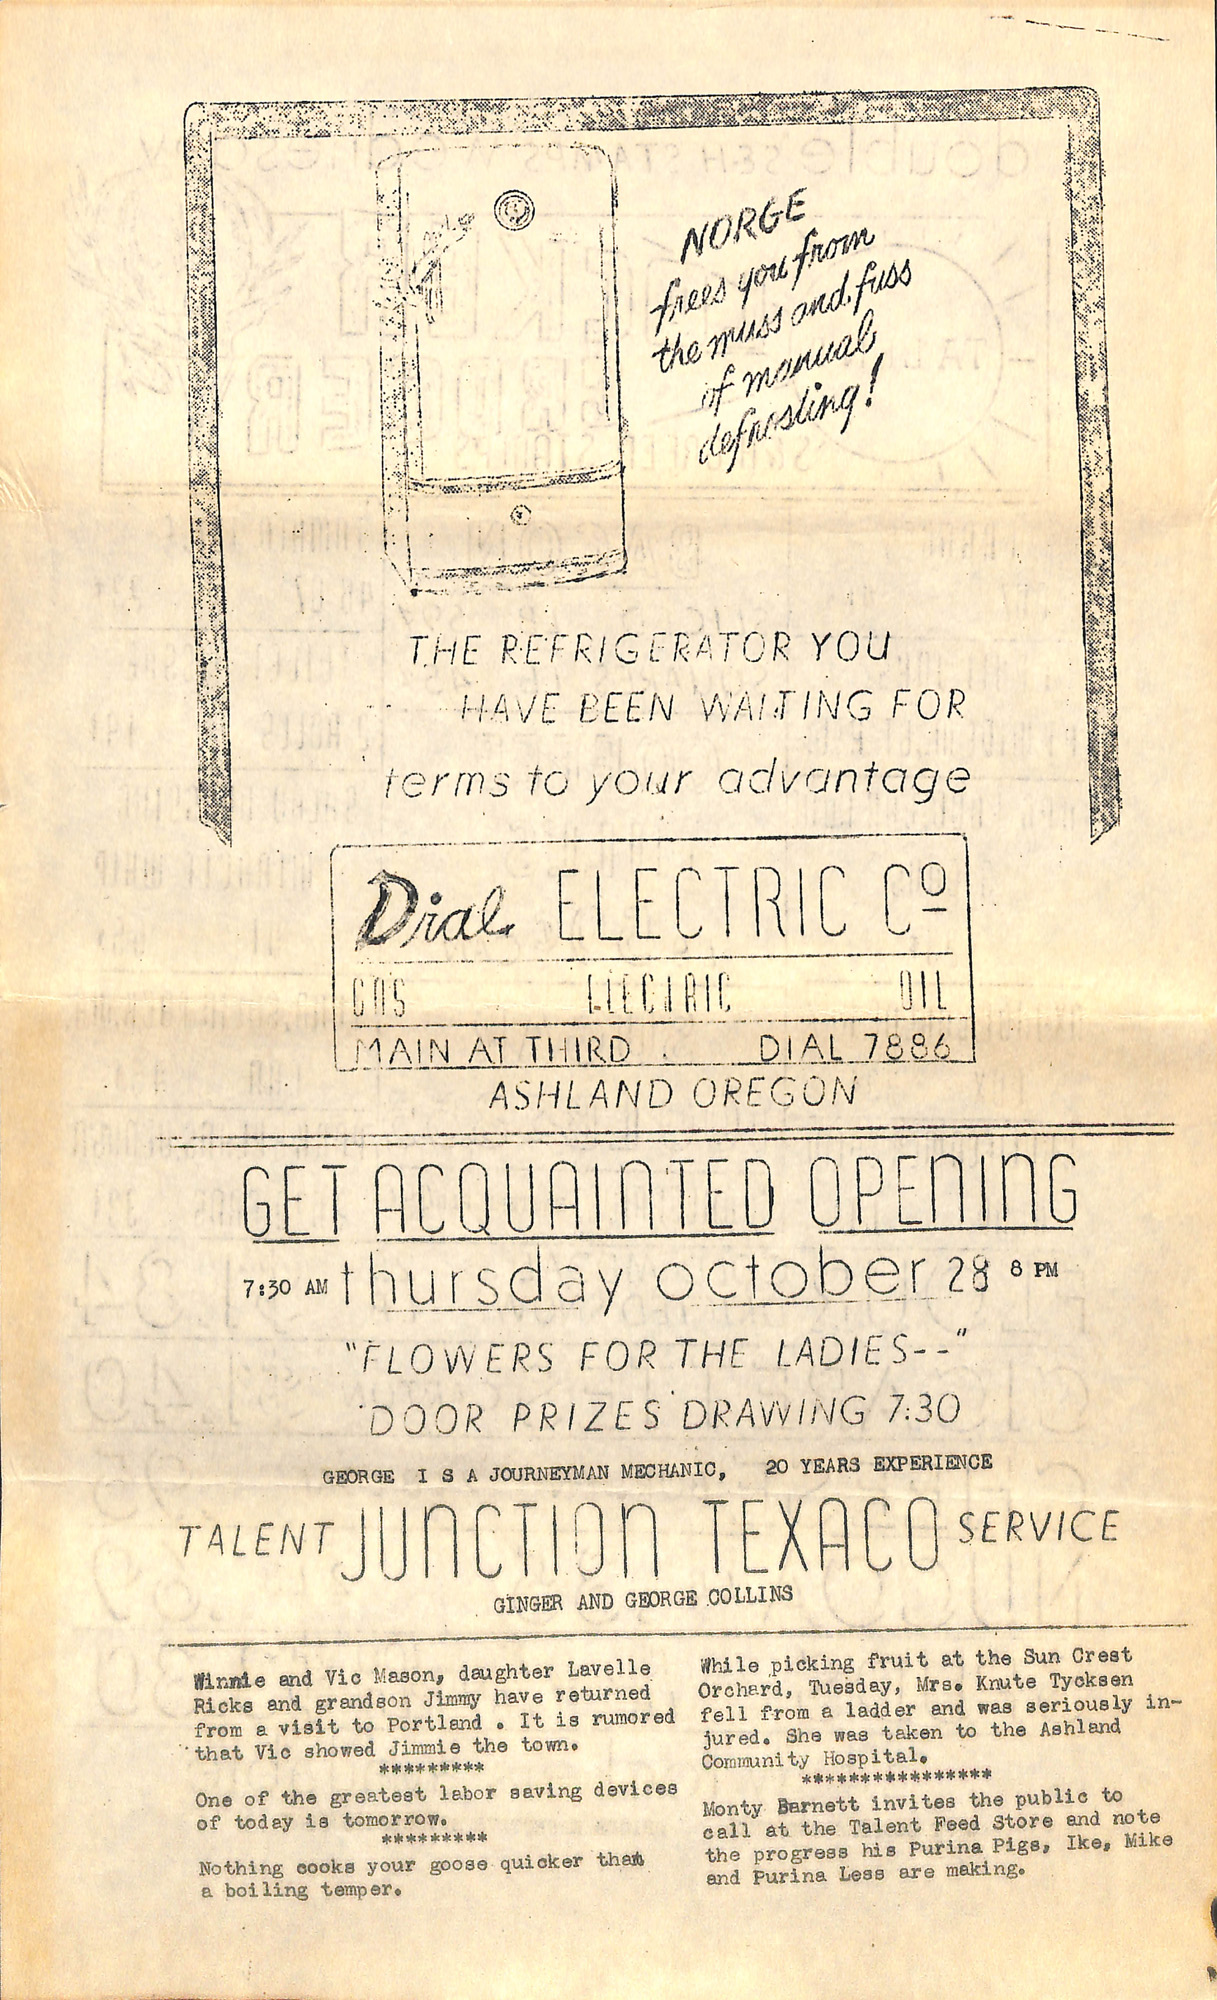 NORGE
frees you from
the muss and fuss
of manual
defrosting!
THE REFRIGERATOR YOU
HAVE BEEN WAITING FOR
terms to your advantage
Dial ELECTRIC Co
GAS ELECTRIC OIL
MAIN AT THIRD . DIAL 7886
ASHLAND OREGON
GET ACQUAINTED OPENING
7:30 AM thursday october 28 8 PM
"FLOWERS FOR THE LADIES--"
DOOR PRIZES DRAWING 7:30
GEORGE I S A JOURNEYMAN MECHANIC, 20 YEARS EXPERIENCE
TALENT JUNCTION TEXACO SERVICE
GINGER AND GEORGE COLLINS
Winnie and Vic Mason, daughter Lavelle
Ricks and grandson Jimmy have returned
from a visit to Portland . It is rumored
that Vic showed Jimmie the town.
*********
One of the greatest labor saving devices
of today is tomorrow.
*********
Nothing cooks your goose quicker than
a boiling temper.
While picking fruit at the Sun Crest
Orchard, Tuesday, Mrs. Knute Tycksen
fell from a ladder and was seriously in-
jured. She was taken to the Ashland
Community Hospital.
****************
Monty Barnett invites the public to
call at the Talent Feed Store and note
the progress his Purina Pigs, Ike, Mike
and Purina Less are making.